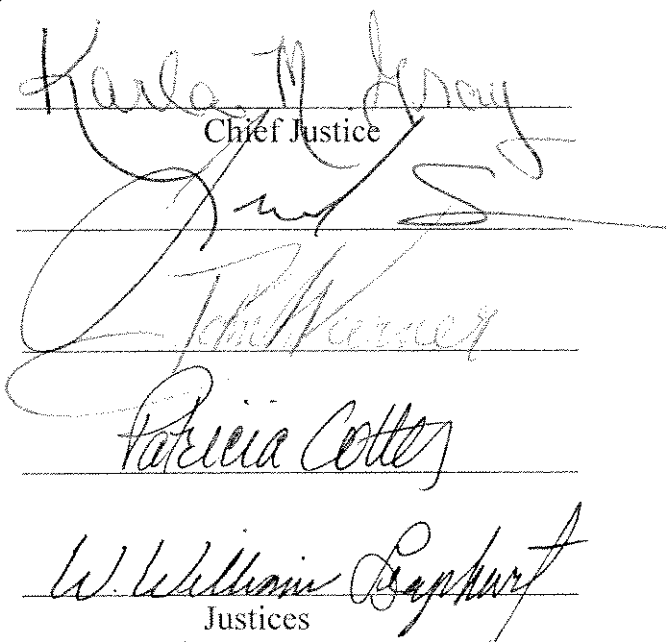 Karla M. Gray
Chief Justice
John Warner
Patricia Cotter
W. William Leaphart
Justices